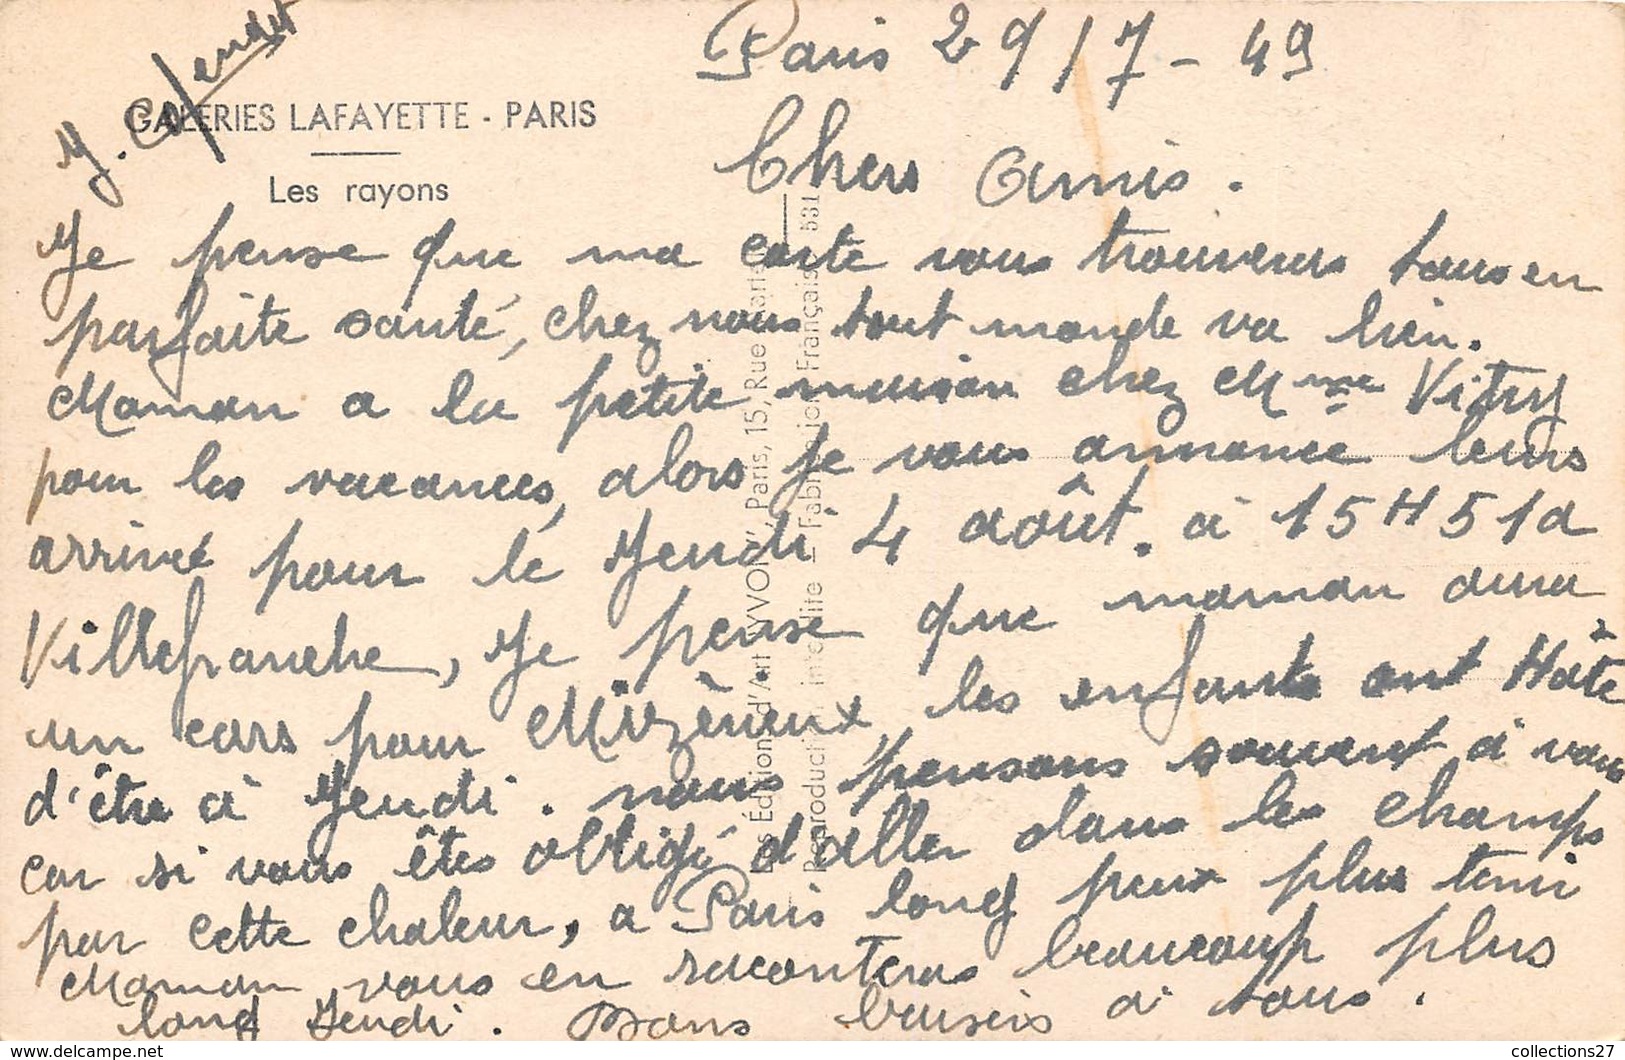 Paris 29/7-49
GALERIES LAFAYETTE - PARIS
Les rayons
Chers Amis.
Je pense que ma carte vous trouveras tous en
parfaite santé, chez nous tout monde va bien.
Maman a la petite maison chez Mme Vitry
pour les vacances, alors je vous annonce leurs
arrivé pour le Jeudi 4 août. à 15H51 a
Villefranche, Je pense que maman aura
un cars pour Mizèrieux, les enfants ont Hâte
d'être à Jeudi. nous pensons souvent à vous
car si vous êtes obligé d'aller dans les champs
par cette chaleur, a Paris long peux plus tenir
Maman vous en raconteras beaucoup plus
long Jeudi. Bons baisers à tous.
Les Éditions d'Art "YVON", Paris, 15, Rue
Reproduction interdite - Fabrication Française 531
collections27